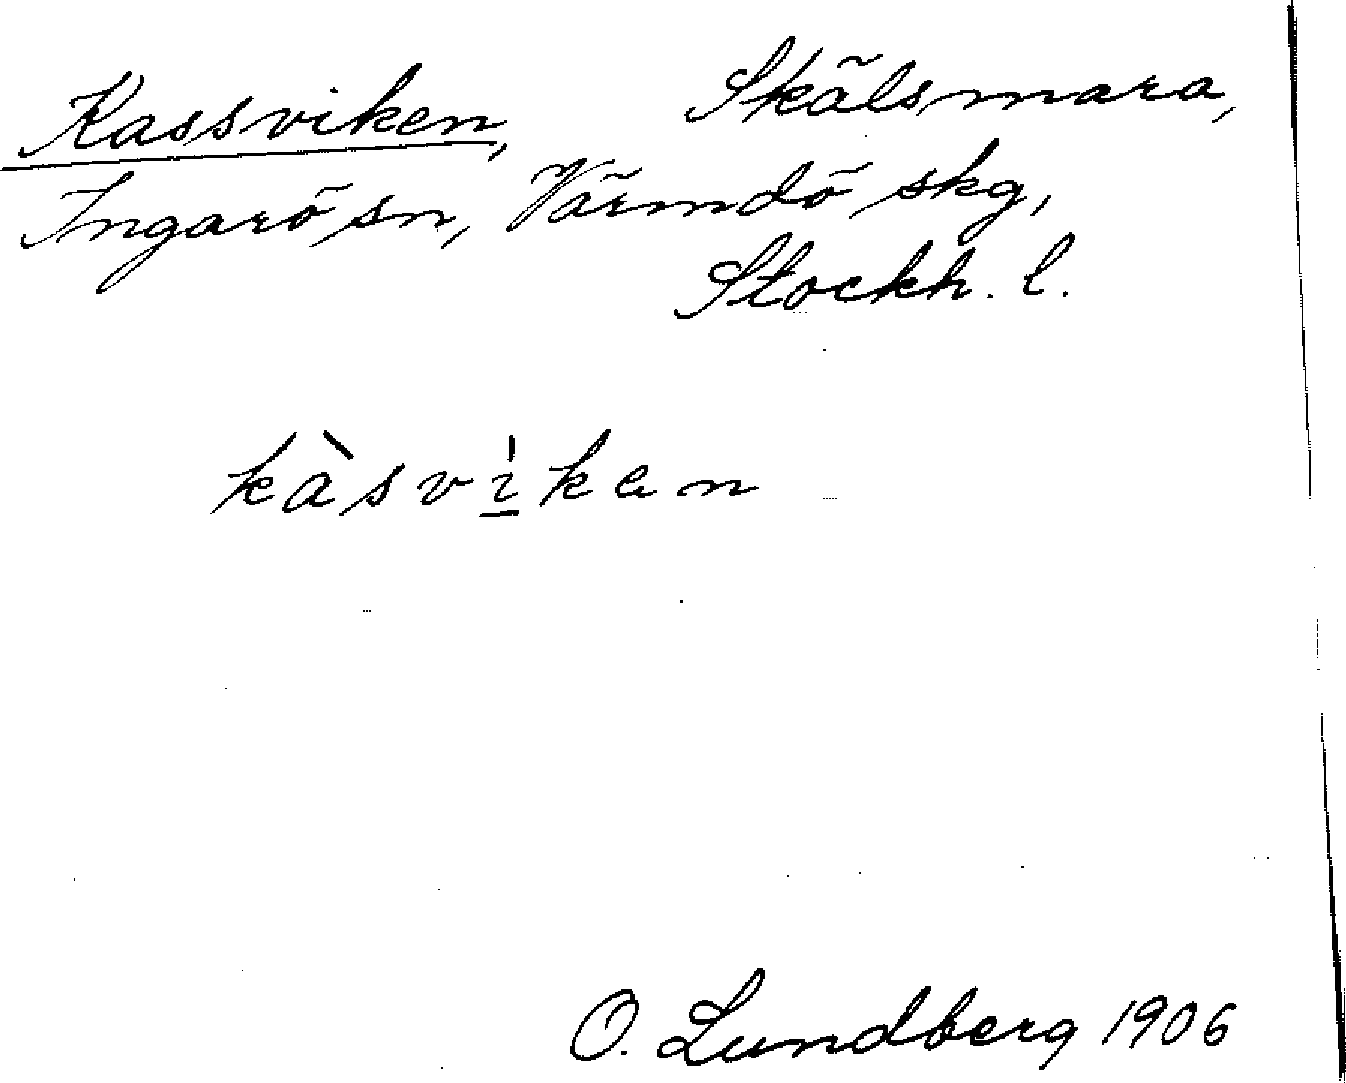 Kassviken, Skälsmara,
Ingarö sn, Värmdö skg,
Stockh. l.
kàsvi̲̍ken
O. Lundberg 1906